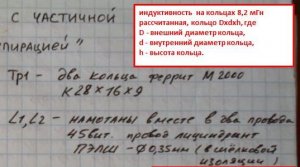 с частичной
индуктивность на кольцах 8,2 мГн
рассчитанная, кольцо Dxdxh, где
D - внешний диаметр кольца,
d - внутренний диаметр кольца,
h - высота кольца.
пирацией"
Тр1 - два кольца феррит М2000
К 28 × 16 × 9
L1, L2 - намотаны вместе в два провода
45 вит. провод лицендрат
ПЭЛШО - Ø 0,35мм (в шёлковой
изоляции)